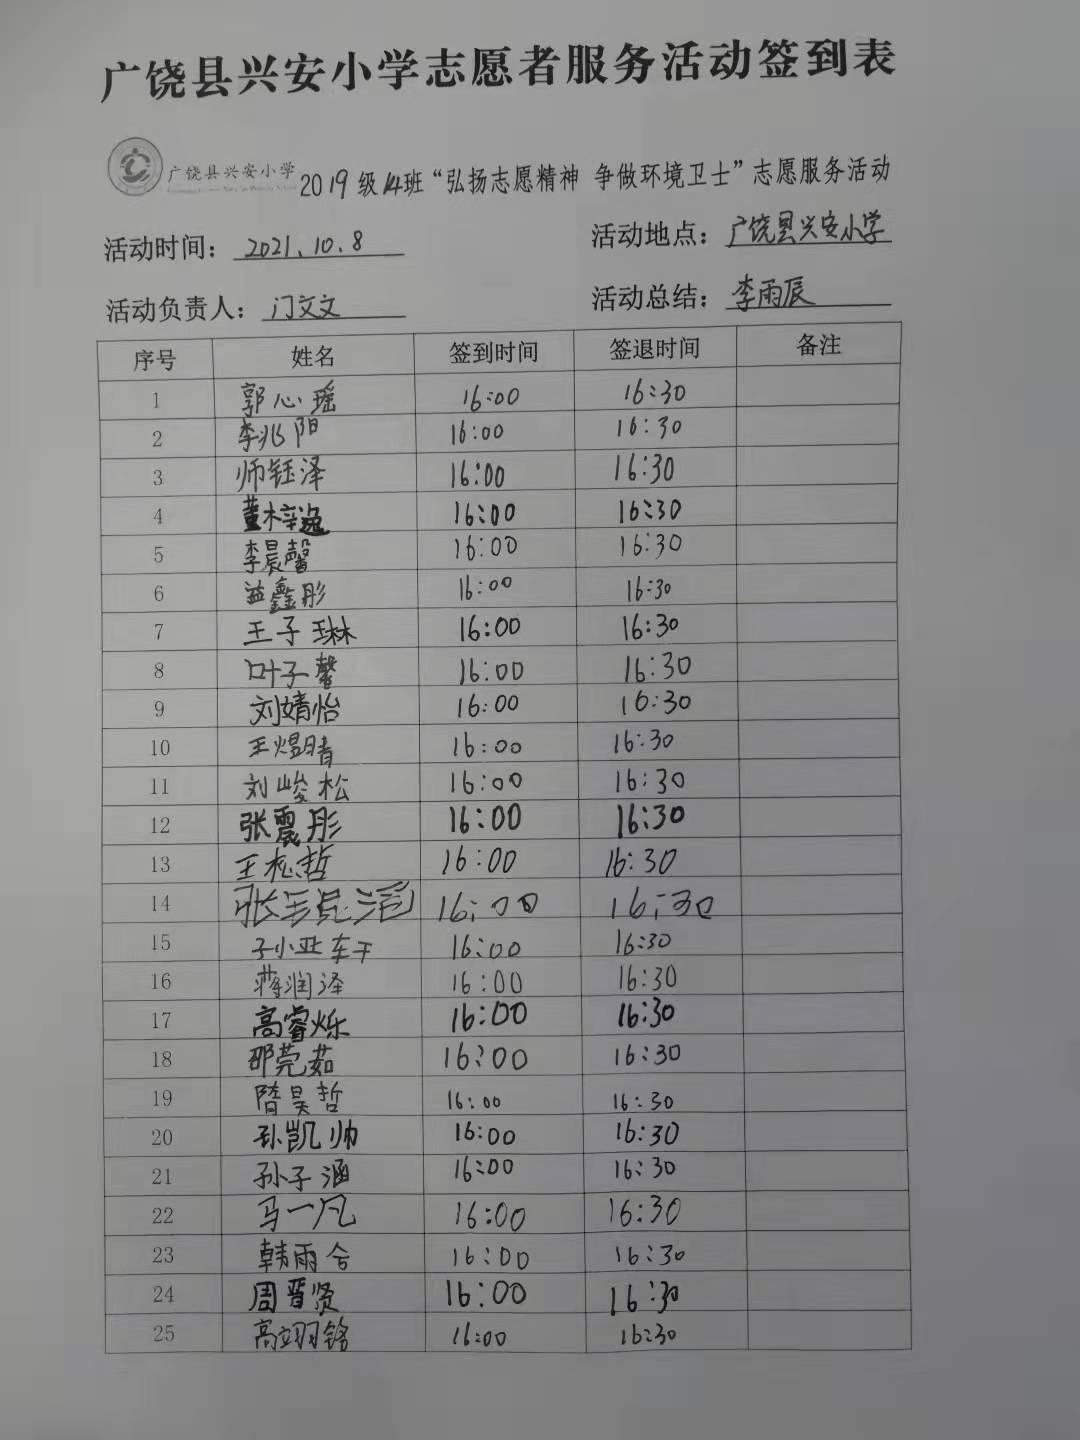 广饶县兴安小学志愿者服务活动签到表
广饶县兴安小学 2019级14班“弘扬志愿精神 争做环境卫士”志愿服务活动
活动时间：2021.10.8 活动地点：广饶县兴安小学
活动负责人：门文文 活动总结：李雨辰
序号 姓名 签到时间 签退时间 备注
1 郭心瑶 16:00 16:30
2 李兆阳 16:00 16:30
3 师钰泽 16:00 16:30
4 董梓逸 16:00 16:30
5 李晨馨 16:00 16:30
6 益鑫彤 16:00 16:30
7 王子琳 16:00 16:30
8 叶子馨 16:00 16:30
9 刘婧怡 16:00 16:30
10 王煜晴 16:00 16:30
11 刘峻松 16:00 16:30
12 张震彤 16:00 16:30
13 王松哲 16:00 16:30
14 16:00 16:30
15 16:00 16:30
16 蒋润泽 16:00 16:30
17 高睿烁 16:00 16:30
18 邵莞茹 16:00 16:30
19 隋昊哲 16:00 16:30
20 孙凯帅 16:00 16:30
21 孙子涵 16:00 16:30
22 马一凡 16:00 16:30
23 韩雨含 16:00 16:30
24 周晋贤 16:00 16:30
25 高翊铭 16:00 16:30